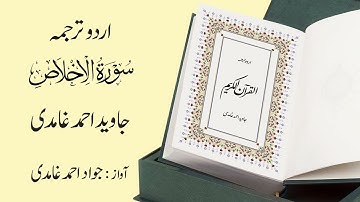 اردو ترجمہ
سورۃ الاخلاص
جاوید احمد غامدی
آواز : جواد احمد غامدی
اردو ترجمہ
القرآن الکریم
جاوید احمد غامدی